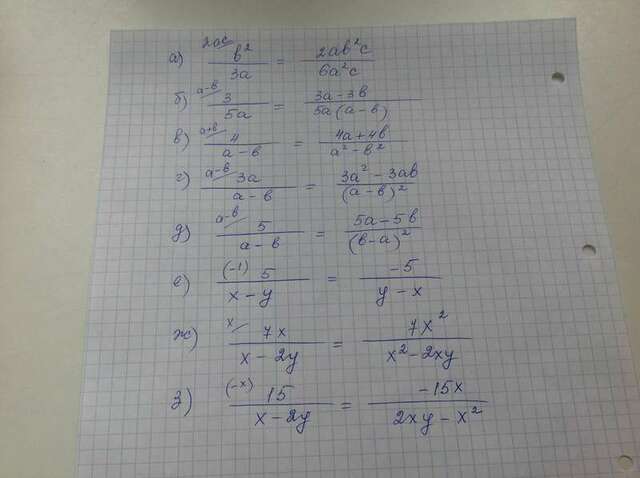 а) 2ac/ b²/3a = 2ab²c/6a²c
б) a-b/ 3/5a = 3a-3b/5a(a-b)
в) a+b/ 4/a-b = 4a+4b/a²-b²
г) a-b/ 3a/a-b = 3a²-3ab/(a-b)²
д) a-b/ 5/a-b = 5a-5b/(b-a)²
е) (-1) 5/x-y = -5/y-x
ж) x/ 7x/x-2y = 7x²/x²-2xy
з) (-x) 15/x-2y = -15x/2xy-x²